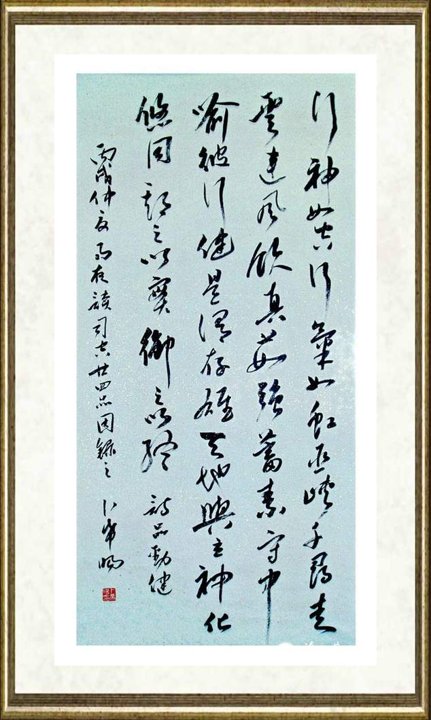 行神如空行氣如虹巫峽千尋走
雲連風飲真茹強蓄素守中
喻彼行健是謂存雄天地與立神化
悠同期之以實御之以終 詩品勁健
丙戌仲夏雨夜讀司空廿四品因錄之